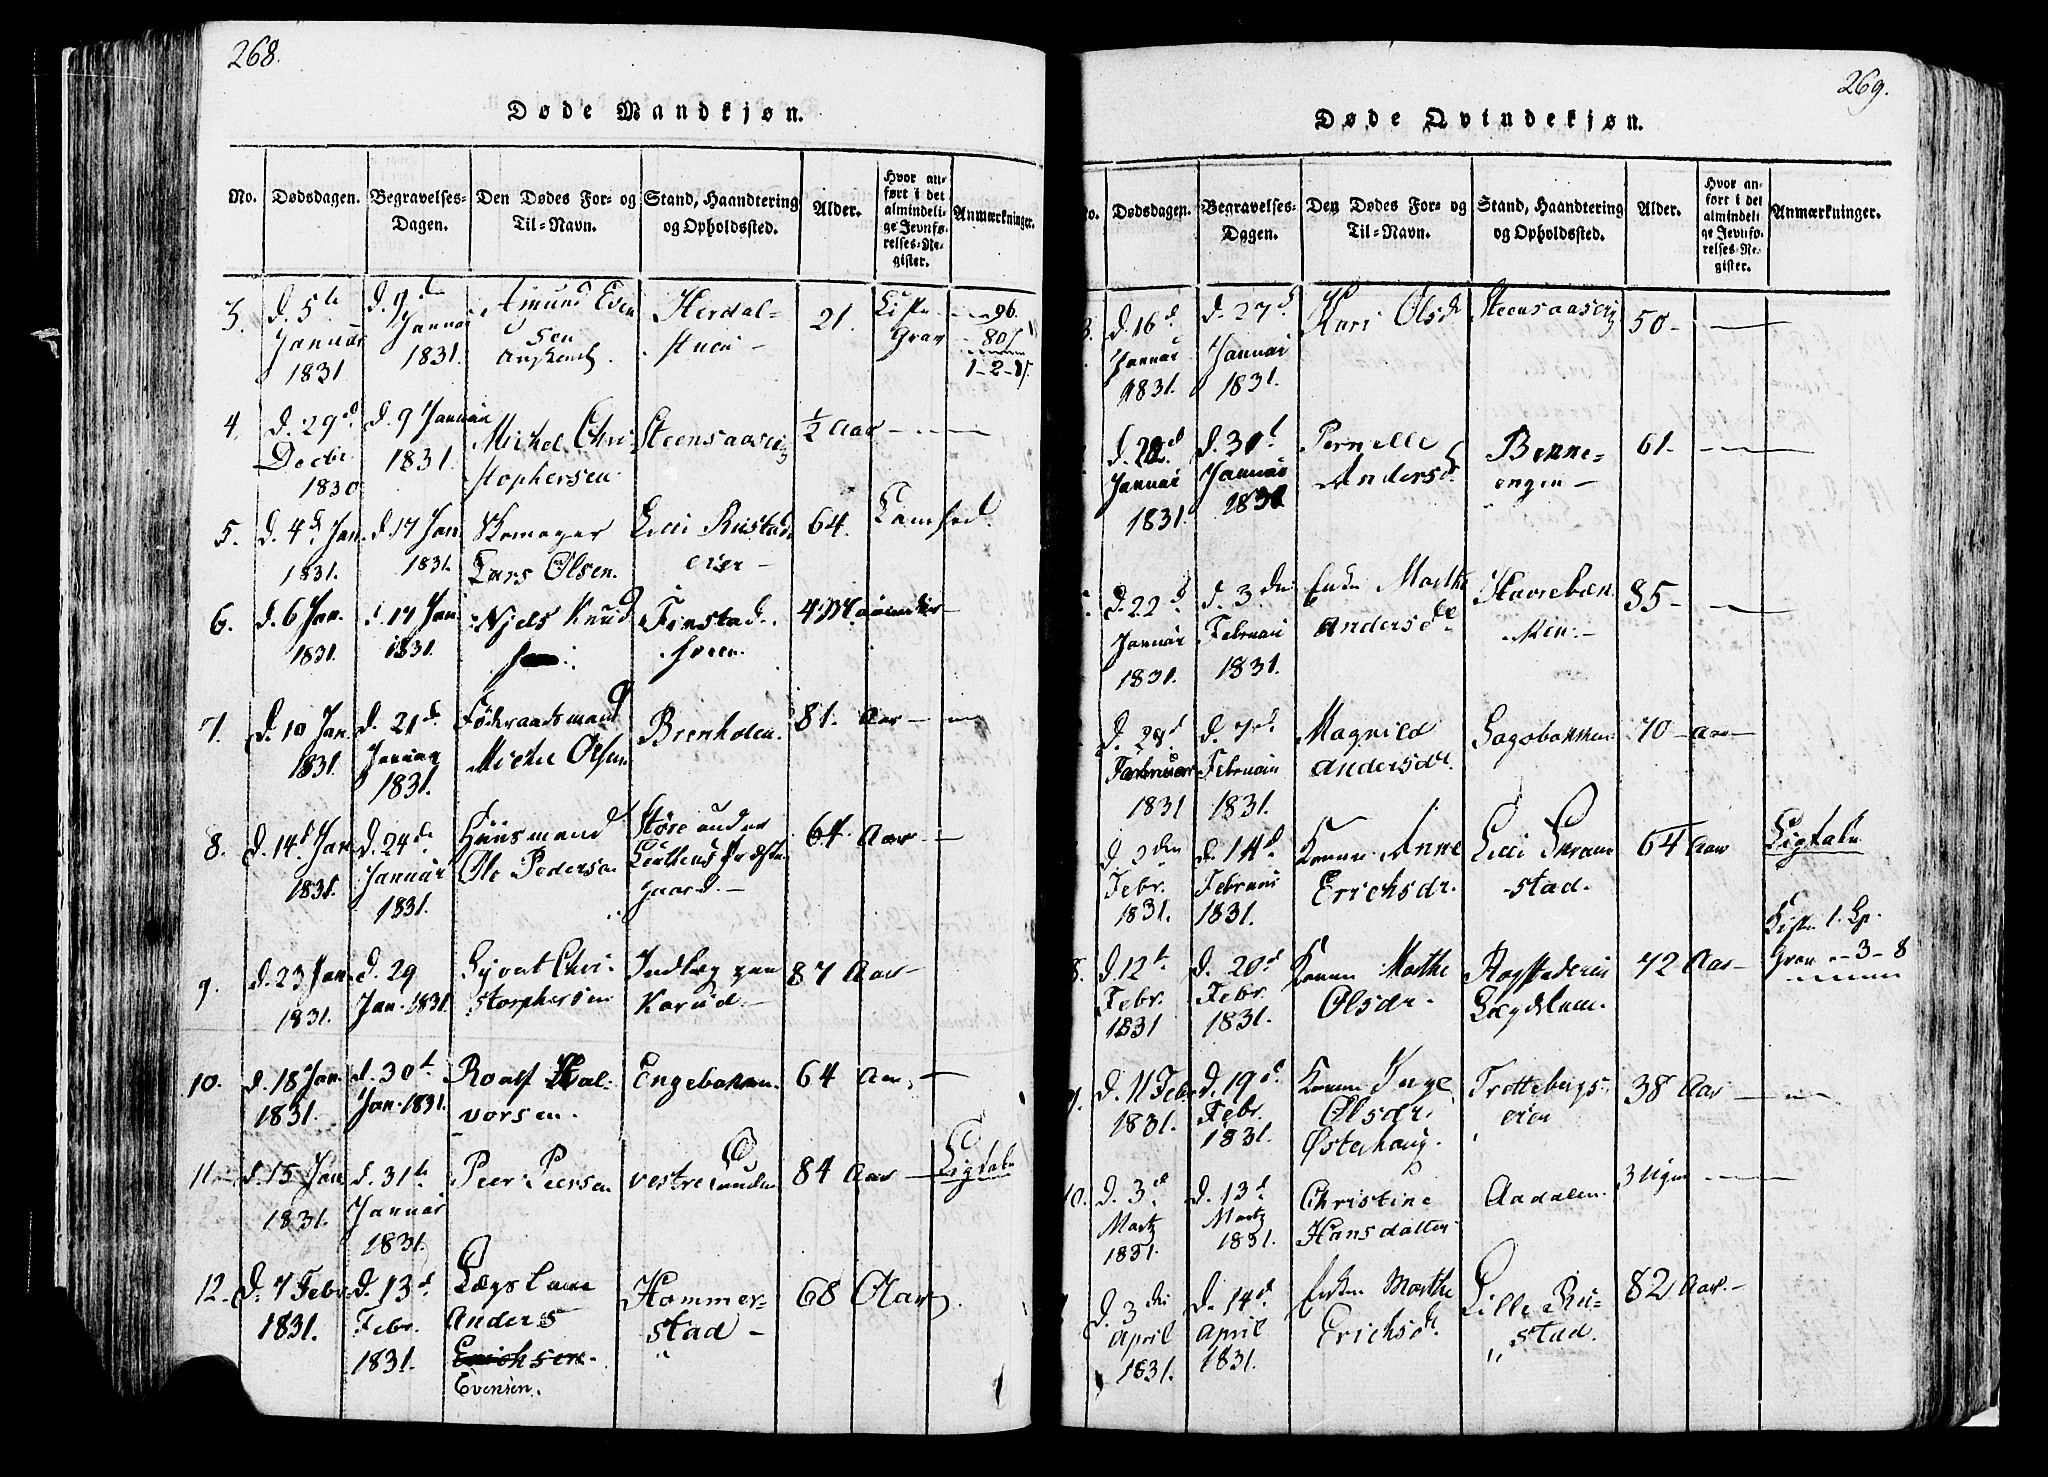 268.
Døde Mandkjøn.
No. Dødsdagen. Begravelses-Dagen. Den Dødes For- og Til-Navn. Stand, Haandtering og Opholdssted. Alder. Hvor anført i det almindelige Jevnførelses-Register. Anmærkninger.
3. d. 5te Januar 1831 d. 9de Januar 1831. Amund Evensen Herdalstuen - 21. Kiste Grav 96. 80 1-2-
4. d. 29d Decbr 1830 d. 9 Januar 1831. Michel Christophersen Steensaaseig ½ Aar
5. d. 4d Jan. 1831. d 17 Jan 1831. Lars Olsen. Lilli Rustad eier - 64.
6. d. 6 Jan. 1831. d. 17 Jan 1831. Njels Knud Finstad 4
7. d. 10 Jan. 1831. d. 21d. Januar 1831. Föderaadsmand Michel Olsen Brenholen. 81. Aar -
8. d. 14d Jan 1831. d. 24de Januar 1831. Huusmand Ole Pedersen Störe under Præstegaard. - 64. Aar -
9. d. 23 Jan 1831. d. 29 Jan. 1831. Syvert Christophersen Indlæg Korud - 87 Aar -
10. d. 18 Jan. 1831. d. 30t Jan. 1831. Roalf Halvorsen. Engebakken. 64 Aar, -
11. d. 15 Jan 1831. d. 31te Januar 1831. Peer Peersen vestre Lunden 84 Aar - Ligtale
12. d. 7 Febr. 1831. d. 13d Febr. 1831. Lægslem Anders Erichsen. Evensen. Hammerstad - 68 Aar.
269.
Døde Qvindekjøn.
No. Dødsdagen. Begravelses-Dagen. Den Dødes For- og Til-Navn. Stand, Haandtering og Opholdssted. Alder. Hvor anført i det almindelige Jevnførelses-Register. Anmærkninger.
3. d. 16d Januar 1831. d. 27d Januar 1831. Kari Olsdr Steensaaseig 50 -
d. 22d Januar 1831. d. 30t Januar 1831 Pernelle Andersd. Benneengen - 61. -
d. 22d Januar 1831. d. 3die Februari 1831. Enke Marthe Andersd. Stavrebækken - 85 -
d. 28d 1831 d. 7d Februari 1831. Magnild Andersdr. Sagsbakken 70 - Aar -
d. 2den Febr. 1831. d. 14d. Februari 1831. Konen Anne Erichsdr. Lilli Skramstad. 64 Aar Ligtale
8. d. 12t Febr. 1831 d. 20d Febr. 1831. Konen Marthe Olsdr. 72 Aar - Kiste 1. Sp. Grav - 3 - 8
9. d. 11 Febr 1831. d. 19d. Febr. 1831. Konen Inge Olsdr. Østerhaug. Trottebergseien 38 Aar
10. d. 3d Martz 1831. d. 13d. Martz 1831. Christine Hansdatter Aadalen. 3 Uger
d. 3die April 1831. d. 14d. April 1831. Enken Marthe Erichsd. Lille Rustad. 82 Aar. -